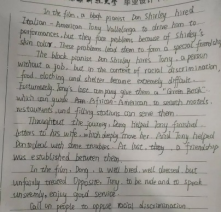 In the film, a black pianist Don Shirley hired
Italian - American, Tony Vallelonga to drive him to
performances, but they met problems because of Shirley's
skin color. These problems lead them to form a special friendship
The black pianist Don Shirley hires Tony, a person
without a job, but in the context of racial discrimination
food, clothing and shelter became extremely difficult.
Fortunately, Tony's boss can give them a "Green Book"
which can guide them African-American to search hotels,
restaurants and filling stations can serve them.
Throughout the journey, Tony helped
letters to his wife, which deeply move her. And Tony helped
Don when At last, they a friendship
was established between them.
In the film, Dong, a well bred, well dressed but
unfairly treated. Opposes Tony to be rude and to speak
enjoy good service.
Call on people to oppose racial discrimination